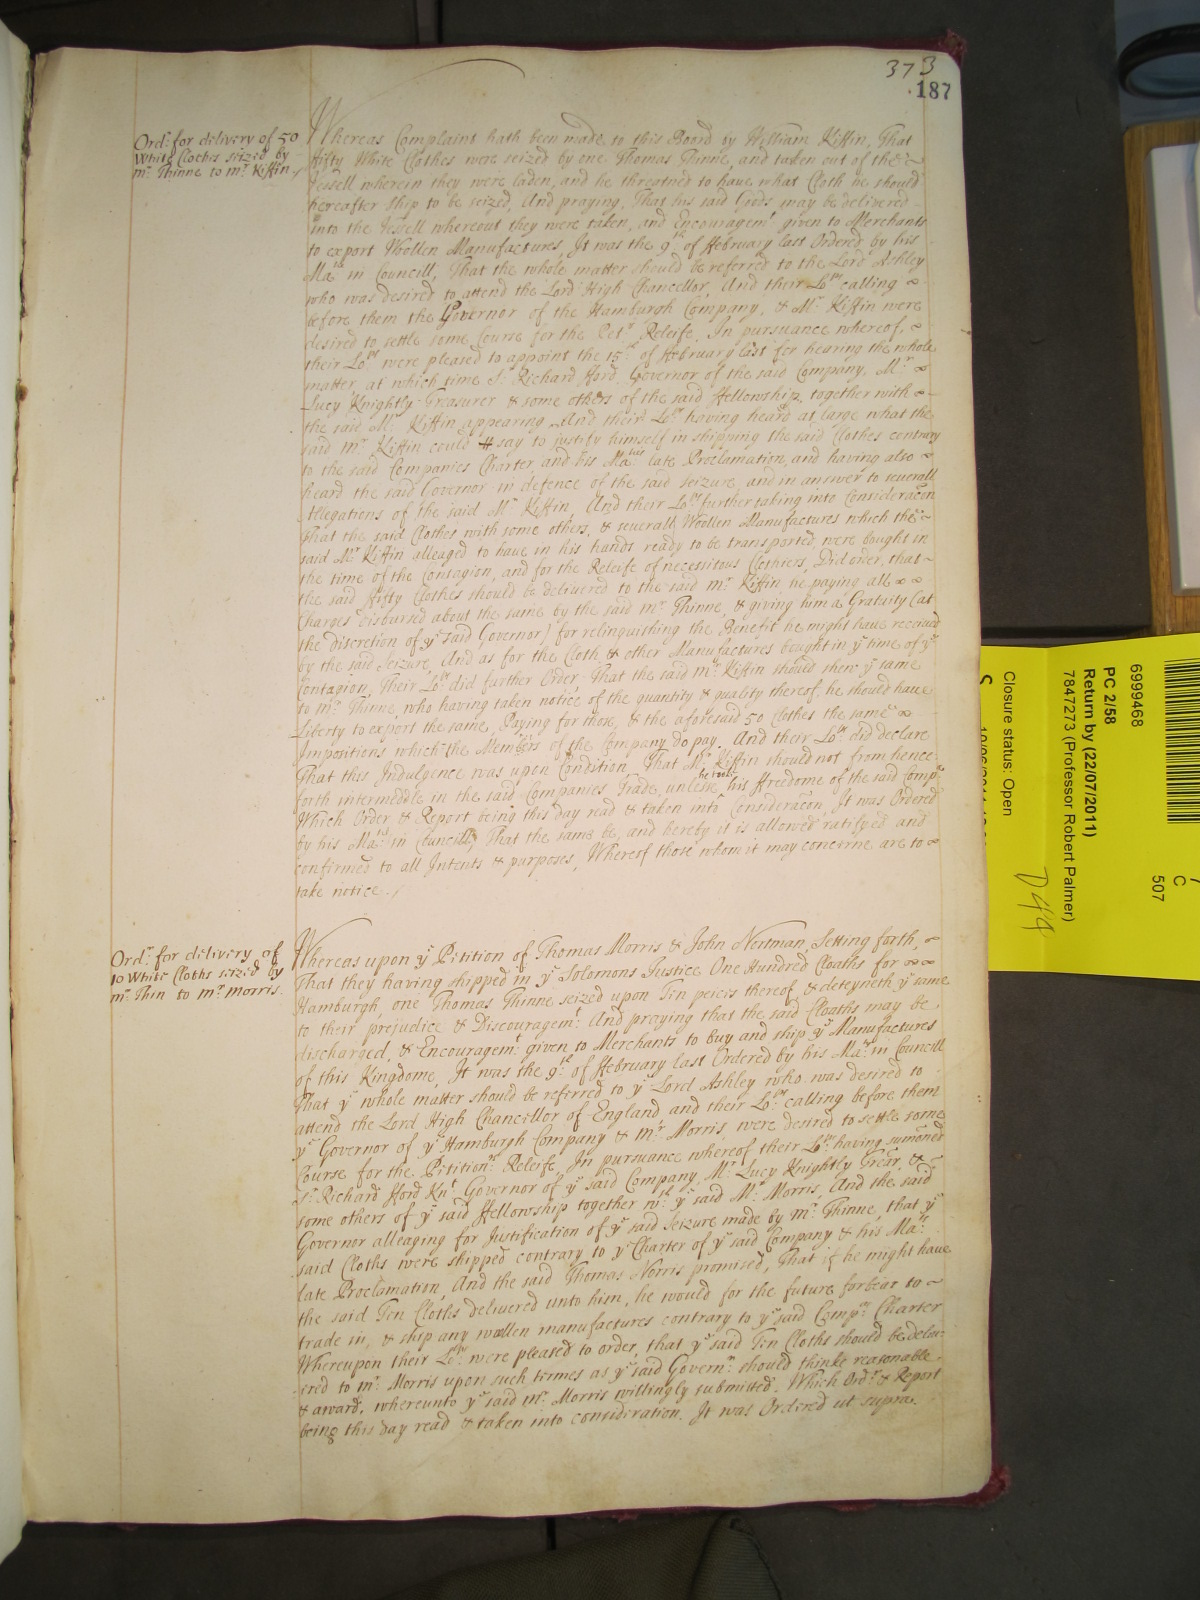 373
187
Ord.r for delivery of 50
White Cloths seized by
m.r Thinne to m.r Kiffin
Whereas Complaint hath been made to this Board by William Kiffin, That
fifty White Clothes were seized by one Thomas Thinne, and taken out of the
Vessell wherein they were laden, and he threatned to have what Cloth he should
hereafter ship to be seized, And praying, That his said Gods may be delivered
into the Vessell whereout they were taken, and Encouragem.t given to Merchants
to export Woollen Manufactures, It was the 9.th of ffebruary last Ordered by his
Ma.tie in Councill, That the whole matter should be referred to the Lord Ashley
who was desired to attend the Lord High Chancellor, And their Lo.pps calling
before them the Governor of the Hamburgh Company, & M.r Kiffin were
desired to settle some Course for the Pet.rs Releife. In pursuance whereof,
their Lo.pps were pleased to appoint the 15.th of ffebruary last for hearing the whole
matter, at which time S.r Richard fford Governor of the said Company, M.r
Lucy Knightly Treasurer & some others of the said ffellowship, together with
the said M.r Kiffin appearing And their Lo.pps having heard at large what the
said m.r Kiffin could say to justify himself in shipping the said Clothes contrary
to the said Companies Charter, and his Ma.ties late Proclamation, and having also
heard the said Governor in defence of the said seizure, and in answer to severall
Allegations of the said M.r Kiffin, And their Lo.pps further taking into Consideracon
That the said Clothes with some others, & severall Woollen Manufactures which the
said M.r Kiffin alleaged to have in his hands ready to be transported, were bought in
the time of the Contagion, and for the Releife of necessitous Clothiers, Did order, that
the said fifty Clothes should be delivered to the said m.r Kiffin he paying all
Charges disbursed about the same by the said m.r Thinne, & giving him a Gratuity (at
the discretion of y.e said Governor) for relinquishing the Benefit he might have received
by the said Seizure, And as for the Cloth & other Manufactures bought in y.e time of y.e
Contagion, Their Lo.pps did further Order That the said m.r Kiffin should shew y.e same
to m.r Thinne, who having taken notice of the quantity & quality thereof, he should have
Liberty to export the same, Paying for those, & the aforesaid 50 Clothes the same
Impositions which the Members of the Company do pay, And their Lo.pps did declare
That this Indulgence was upon Condition, That M.r Kiffin should not from hence
forth intermeddle in the said Companies Trade, unless he took his ffreedome of the said Comp.ny
Which Order & Report being this day read & taken into Consideracon, It was Ordered
by his Ma.tie in Councill, That the same be, and hereby it is allowed ratifyed and
confirmed to all Intents & purposes, Whereof those whom it may concerne are to
take notice.
Ord.r for delivery of
10 White Cloths seized by
m.r Thin to m.r Morris.
Whereas upon y.e Petition of Thomas Morris & John Nertman, Setting forth,
That they having shipped in y.e Solomons Justice One Hundred Cloaths for
Hamburgh, one Thomas Thinne seized upon Ten peices thereof & deteyneth y.e same
to their prejudice & Discouragem.t And praying that the said Cloaths may be
discharged, & Encouragem.t given to Merchants to buy and ship y.e Manufactures
of this Kingdome, It was the 9.th of ffebruary last Ordered by his Ma.tie in Councill
That y.e whole matter should be referred to y.e Lord Ashley who was desired to
attend the Lord High Chancillor of England, and their Lo.pps calling before them
y.e Governor of y.e Hamburgh Company & m.r Morris, were desired to settle some
Course for the Petition.rs Releife, In pursuance whereof their Lo.pps having sumoned
S.r Richard fford Kn.t Governor of y.e said Company, M.r Lucy Knightly Trear, &
some others of y.e said ffellowship together w.th y.e said M.r Morris, And the said
Governor alleaging for Justification of y.e said seizure made by m.r Thinne, that y.e
said Cloths were shipped contrary to y.e Charter of y.e said Company & his Ma.ties
late Proclamation, And the said Thomas Norris promised, That if he might have
the said Ten Cloths delivered unto him, he would for the future forbear to
trade in, & ship any wollen manufactures contrary to y.e said Comp.nys Charter
Whereupon their Lo.pps were pleased to order, that y.e said Ten Cloths should be delive-
ired to m.r Morris upon such termes as y.e said Govern.r should thinke reasonable
& award, whereunto y.e said m.r Morris willingly submitted. Which Ord.r & Report
being this day read & taken into consideration. It was Ordered ut supra.
6999468
PC 2/58
Return by (22/07/2011)
7847273 (Professor Robert Palmer)
Closure status: Open
C
507
D44